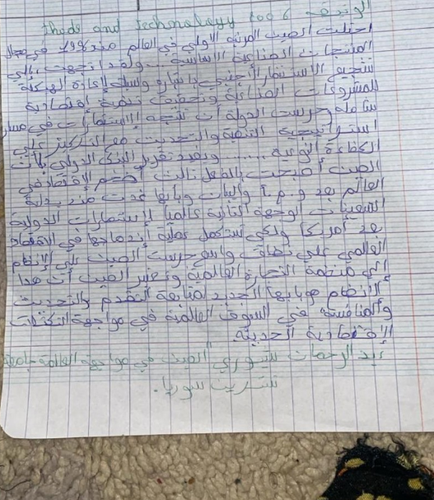 الوثيقة Thade and technology 2006
احتلت الصين المرتبة الأولى في العالم منذ في مجال
المنتجات الصناعية الأساسية ولقد اتجهت إلى
تشجيع الاستثمار الأجنبي وإعادة الهيكلة
للمشروعات الصناعية وتحقيق تنمية اقتصادية
شاملة حرصت الدولة أن تتجه الاستثمارات في مسار
استراتيجية التنمية والتحديث مع التركيز على
الكفاءة النوعية ...... ويفيد تقرير البنك الدولي بأن
الصين أصبحت بالفعل ثالث أضخم اقتصاد في
العالم بعد و.م.أ واليابان وبأنها غدت منذ بداية
التسعينات الوجهة الثانية عالميا للاستثمارات الدولية
بعد أمريكا ولكي تستكمل عملية إندماجها في الاقتصاد
العالمي على نطاق واسع حرصت الصين على الإنضمام
إلى منظمة التجارة العالمية وتعتبر الصين أن هذا
الإنضمام هو بابها الجديد لمتابعة التقدم والتحديث
والمنافسة في السوق العالمية في مواجهة التكتلات
الاقتصادية الحديثة.
عبد الرحمان الصين في مواجهة العولمة جامعة
تشرين سوريا.